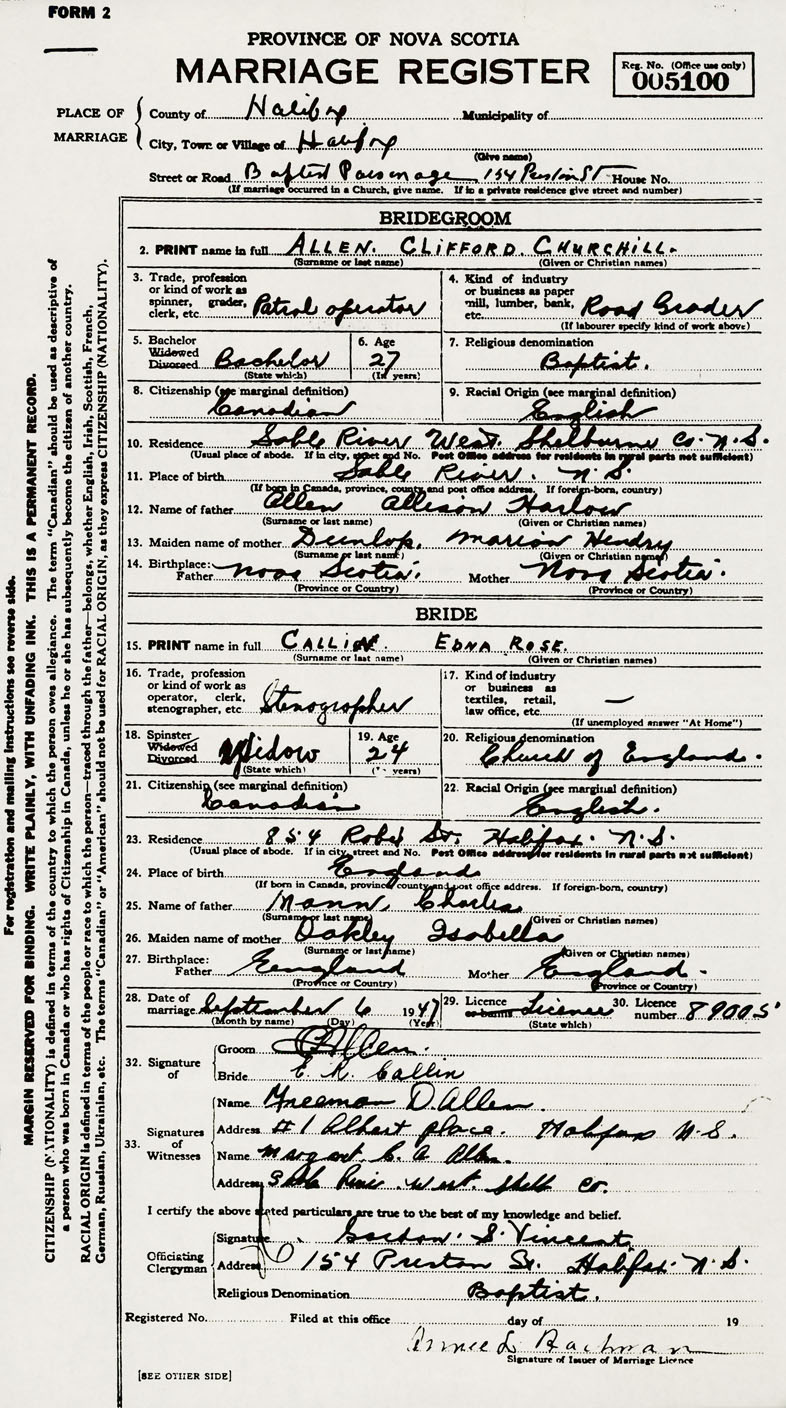 FORM 2
PROVINCE OF NOVA SCOTIA
MARRIAGE REGISTER
Reg. No. (Office use only)
005100
PLACE OF MARRIAGE
County of Halifax Municipality of
City, Town or Village of Halifax
(Give name)
Street or Road Baptist Parsonage 154 Preston ST House No.
(If marriage occurred in a Church, give name. If in a private residence give street and number)
BRIDEGROOM
2. PRINT name in full ALLEN. CLIFFORD CHURCHILL.
(Surname or last name) (Given or Christian names)
3. Trade, profession or kind of work as spinner, grader, clerk, etc. Patrol operator
4. Kind of industry or business as paper mill, lumber, bank, etc. Road Grader
(If labourer specify kind of work above)
5. Bachelor Widowed Divorced Bachelor
(State which)
6. Age 27
(In years)
7. Religious denomination Baptist.
8. Citizenship (see marginal definition) Canadian
9. Racial Origin (see marginal definition) English
10. Residence Sable River West. Shelburne Co. N.S.
(Usual place of abode. If in city, street and No. Post Office address for residents in rural parts not sufficient)
11. Place of birth Sable River. N.S
(If born in Canada, province, county and post office address. If foreign-born, country)
12. Name of father Allen Allison Harlow
(Surname or last name) (Given or Christian names)
13. Maiden name of mother Dunlop, Marion Hendry
(Surname or last name) (Given or Christian names)
14. Birthplace: Father Nova Scotia. Mother Nova Scotia.
(Province or Country) (Province or Country)
BRIDE
15. PRINT name in full CALLIN. EDNA ROSE.
(Surname or last name) (Given or Christian names)
16. Trade, profession or kind of work as operator, clerk, stenographer, etc. Stenographer
17. Kind of industry or business as textiles, retail, law office, etc. —
(If unemployed answer "At Home")
18. Spinster Widowed Divorced Widow
(State which)
19. Age 24
(In years)
20. Religious denomination Church of England.
21. Citizenship (see marginal definition) Canadian
22. Racial Origin (see marginal definition) English.
23. Residence 854 Robie St. Halifax. N.S.
(Usual place of abode. If in city, street and No. Post Office address for residents in rural parts not sufficient)
24. Place of birth England
(If born in Canada, province county and post office address. If foreign-born, country)
25. Name of father Mann, Charles
(Surname or last name) (Given or Christian names)
26. Maiden name of mother Oakley Isabella
(Surname or last name) (Given or Christian names)
27. Birthplace: Father England Mother England.
(Province or Country) (Province or Country)
28. Date of marriage September 6 1947
(Month by name) (Day) (Year)
29. Licence or banns Licence
(State which)
30. Licence number 89005
32. Signature of
Groom C Allen.
Bride E. R. Callin
33. Signatures of Witnesses
Name Freeman D. Allen.
Address #1 Albert place. Halifax N.S.
Name Margaret C. A. Allen.
Address Sable River West. Shelb Co.
I certify the above stated particulars are true to the best of my knowledge and belief.
Officiating Clergyman
Signature Gordon S. Vincent
Address 154 Preston St. Halifax. N.S.
Religious Denomination Baptist.
Registered No. Filed at this office day of 19
Bachman
Signature of Issuer of Marriage Licence
[SEE OTHER SIDE]
For registration and mailing instructions see reverse side.
MARGIN RESERVED FOR BINDING. WRITE PLAINLY, WITH UNFADING INK. THIS IS A PERMANENT RECORD.
CITIZENSHIP (NATIONALITY) is defined in terms of the country to which the person owes allegiance. The term "Canadian" should be used as descriptive of
a person who was born in Canada or who has rights of Citizenship in Canada, unless he or she has subsequently become the citizen of another country.
RACIAL ORIGIN is defined in terms of the people or race to which the person—traced through the father—belongs, whether English, Irish, Scottish, French,
German, Russian, Ukrainian, etc. The terms "Canadian" or "American" should not be used for RACIAL ORIGIN, as they express CITIZENSHIP (NATIONALITY).